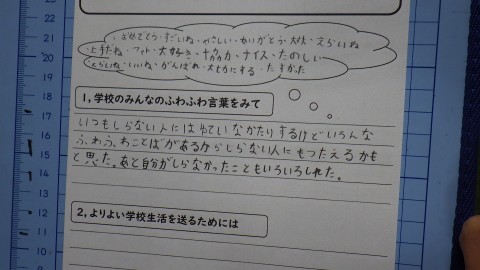 おめでとう・すごいね・やさしい・ありがとう・大丈夫・えらいね
上手だね・ファイト・大好き・ナイス・たのしい
いいね・がんばれ・大切にする・たすかった
1,学校のみんなのふわふわ言葉をみて
いつもしらない人には いていなかたりするけどいろんな
ふわふわことばがあるからしらない人にもつたえるかも
と思った。あと自分がしらなかったこともいろいろしれた。
2,よりよい学校生活を送るためには